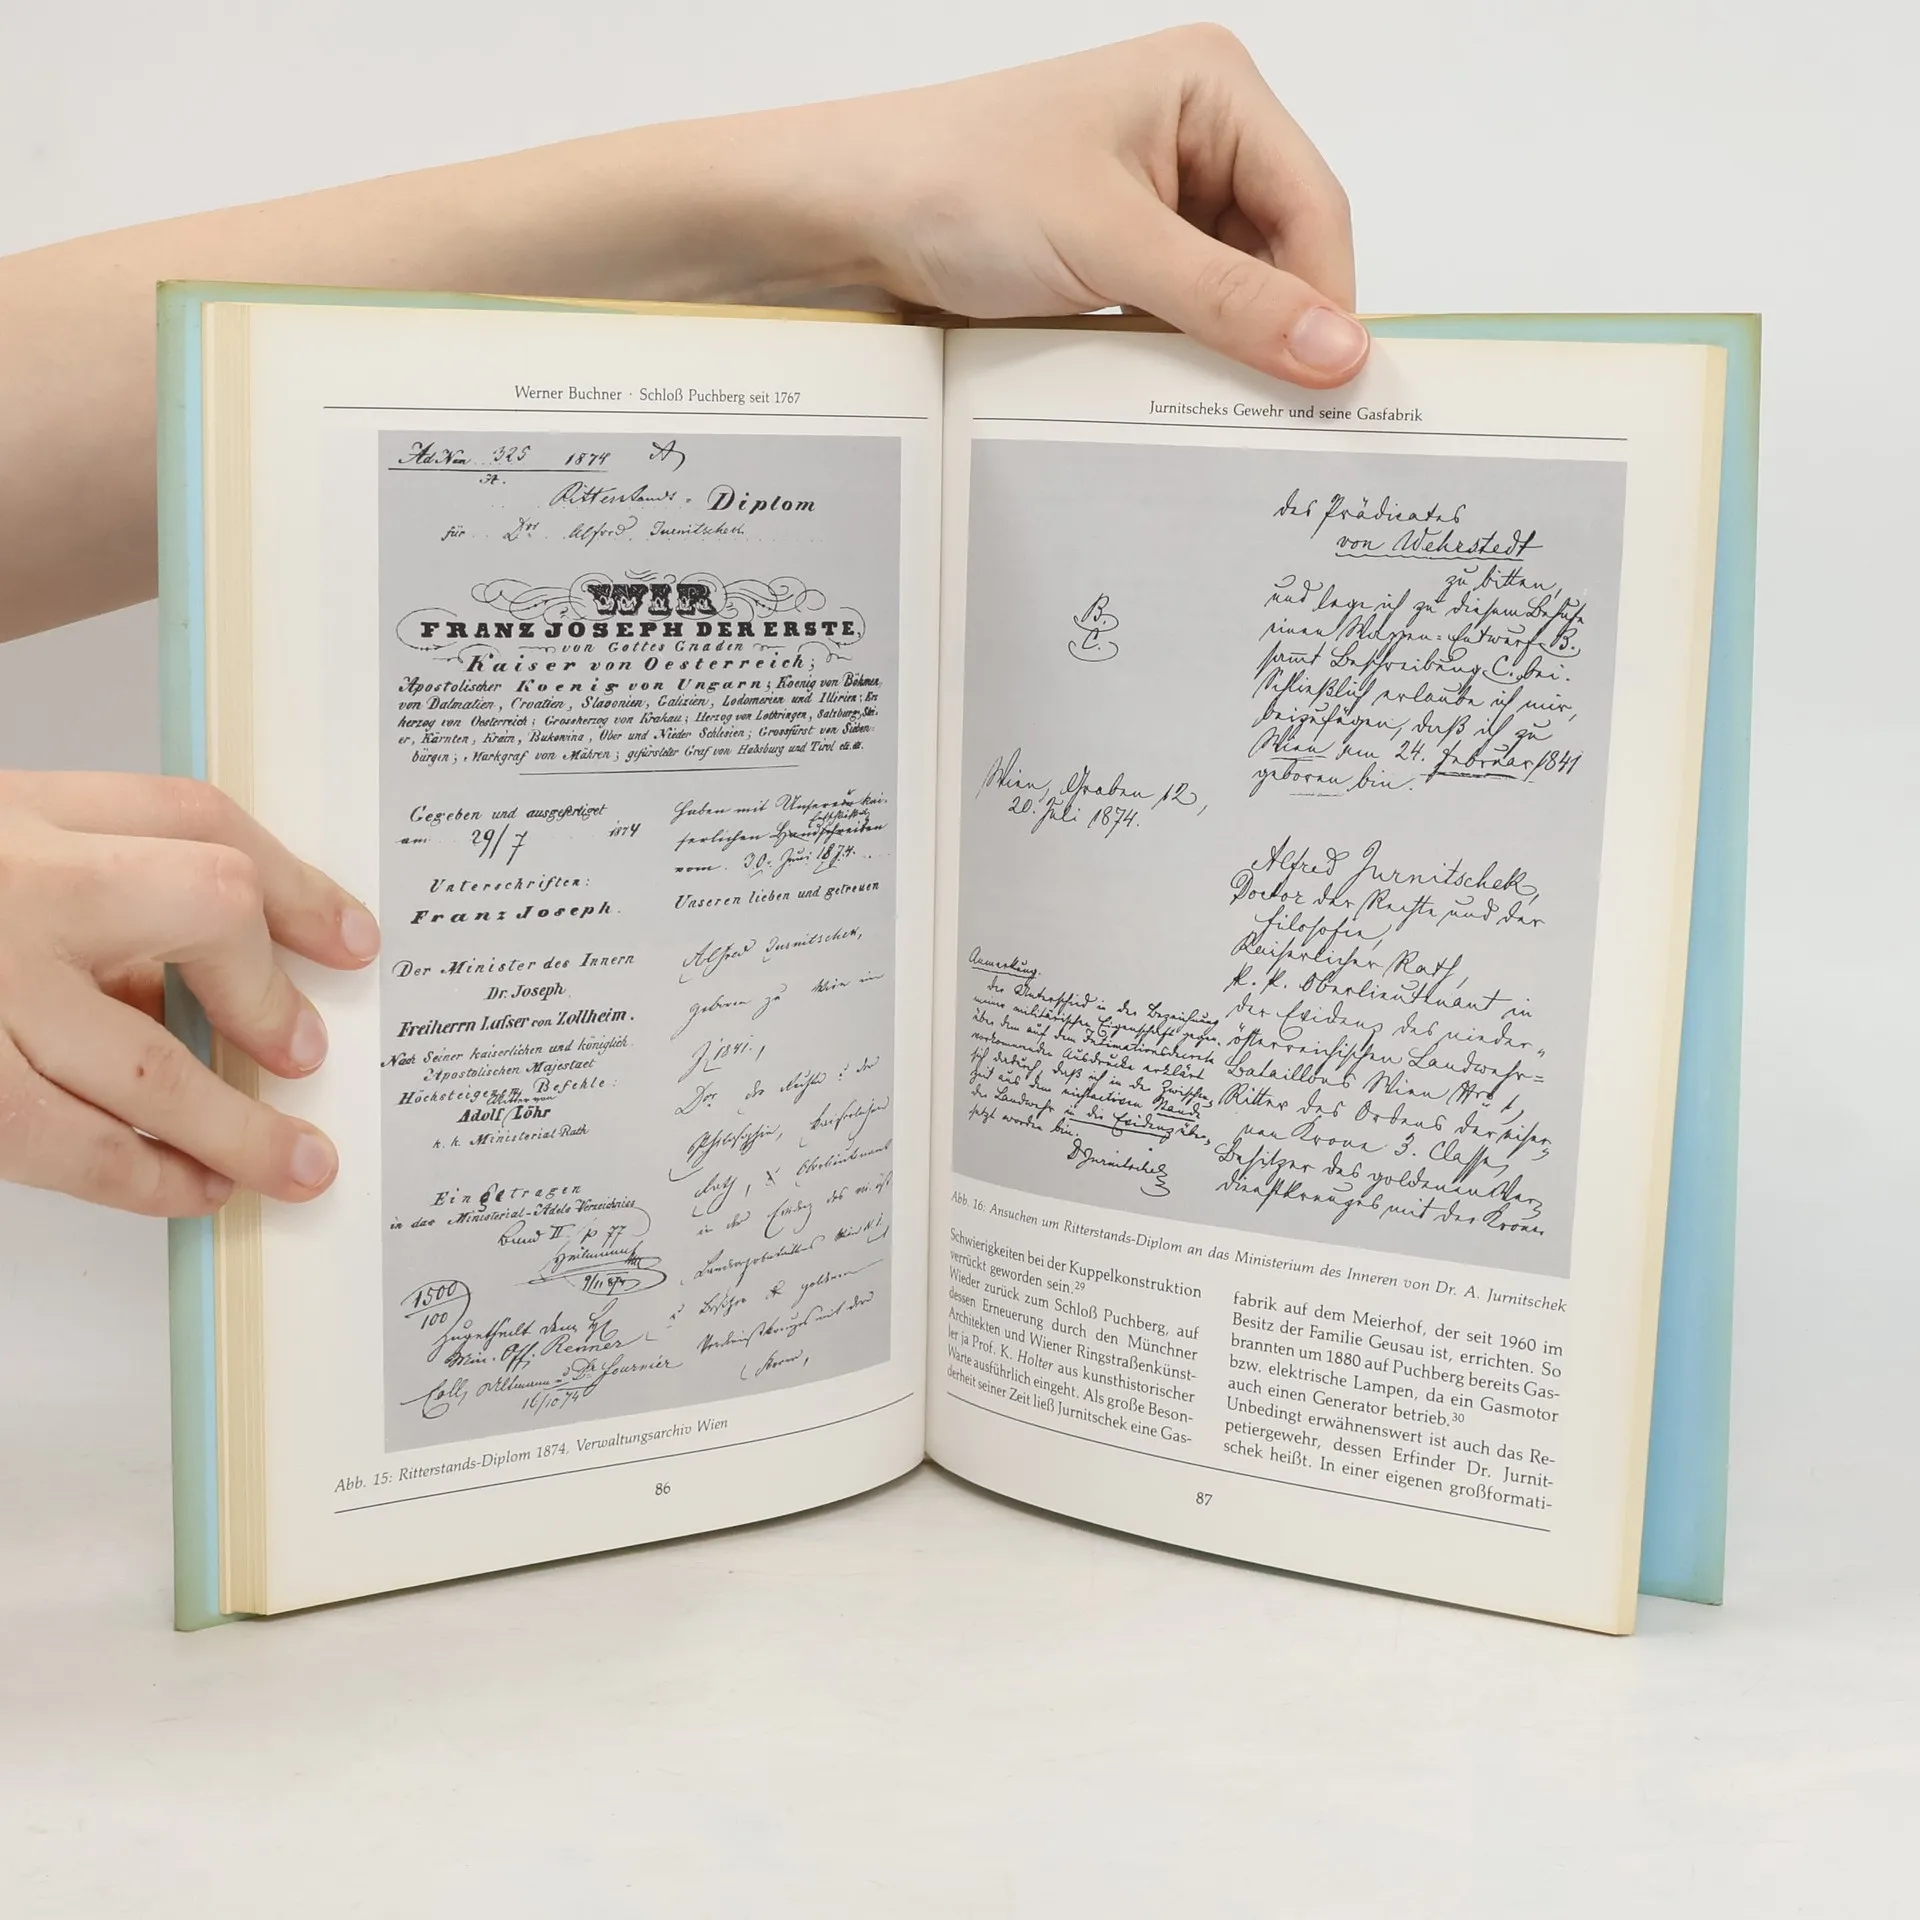 Werner Buchner · Schloß Puchberg seit 1767
Ad Num 325 1874 A
A.
Ritterstands- Diplom
für Dor Alfred Jurnitschek
WIR
FRANZ JOSEPH DER ERSTE,
von Gottes Gnaden
Kaiser von Oesterreich;
Apostolischer Koenig von Ungarn; Koenig von Böhmen,
von Dalmatien, Croatien, Slavonien, Galizien, Lodomerien und Illirien; Er-
herzog von Oesterreich; Grossherzog von Krakau; Herzog von Lothringen, Salzburg, Stei-
er, Kärnten, Krain, Bukowina, Ober und Nieder Schlesien; Grossfürst von Sieben-
bürgen; Markgraf von Mähren; gefürsteter Graf von Habsburg und Tirol etc. etc.
Gegeben und ausgefertiget
am 29/7 1874
Unterschriften:
Franz Joseph.
Der Minister des Innern
Dr. Joseph
Freiherrn Laſser von Zollheim.
Nach Seiner kaiserlichen und königlich
Apostolischen Majestaet
Höchsteigenem Befehle:
Ritter von
Adolf Löhr
k. k. Ministerial-Rath
Eingetragen
in das Ministerial-Adels-Verzeichniss
Band II p 77
9/11 874
1500
100
Zugetheilt dem
Min. Off. Renner
Coll. Altmann u Dr Fournier
16/10 74
Haben mit Unserer kai-
Entschließung
serlichen Handschreiben
vom 30. Juni 1874.
Unseren lieben und getreuen
Alfred Jurnitschek,
geboren zu Wien im
J. 1841.,
Dor der Rechte u der
Philosophie, kaiserlichen
Rath, Oberlieutenant
in der Evidenz des n. öst
Landwehrbataillons Wien N. 1,
u Besitzer des goldenen
Verdienstkreuzes mit der
Krone,
Abb. 15: Ritterstands-Diplom 1874, Verwaltungsarchiv Wien
86
Jurnitscheks Gewehr und seine Gasfabrik
des Prädicates
von Wehrstedt
zu bitten,
und lege ich zu diesem Behufe
einen Wappen-Entwurf B.
sammt Beschreibung C. bei.
Schließlich erlaube ich mir,
beizufügen, daß ich zu
Wien am 24. Februar 1841
geboren bin.
B.
C.
Wien, Graben 12,
20. Juli 1874.
Alfred Jurnitschek,
Doctor der Rechte und der
Filosofie,
Kaiserlicher Rath,
k. k. Oberlieutenant in
der Evidenz des nieder-
österreichischen Landwehr-
Bataillons Wien Nro 1,
Ritter des Ordens der eiser-
nen Krone 3. Classe,
Besitzer des goldenen Ver-
dienstkreuzes mit der Krone.
Anmerkung.
der Unterschied in der Bezeichnung
meiner militärischen Eigenschaft gegen-
über dem auf dem Intimationsdecrete
vorkommenden Ausdrucke erklärt
sich dadurch, daß ich in der Zwischen-
zeit aus dem nichtactiven Stande
der Landwehr in die Evidenz über-
setzt worden bin.
D Jurnitschek
Abb. 16: Ansuchen um Ritterstands-Diplom an das Ministerium des Inneren von Dr. A. Jurnitschek
Schwierigkeiten bei der Kuppelkonstruktion
verrückt geworden sein.29
Wieder zurück zum Schloß Puchberg, auf
dessen Erneuerung durch den Münchner
Architekten und Wiener Ringstraßenkünst-
ler ja Prof. K. Holter aus kunsthistorischer
Warte ausführlich eingeht. Als große Beson-
derheit seiner Zeit ließ Jurnitschek eine Gas-
fabrik auf dem Meierhof, der seit 1960 im
Besitz der Familie Geusau ist, errichten. So
brannten um 1880 auf Puchberg bereits Gas-
bzw. elektrische Lampen, da ein Gasmotor
auch einen Generator betrieb.30
Unbedingt erwähnenswert ist auch das Re-
petiergewehr, dessen Erfinder Dr. Jurnit-
schek heißt. In einer eigenen großformati-
87